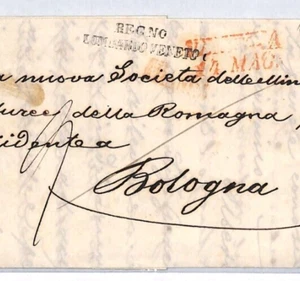 REGNO
LOMBARDO VENETO
MAG
a nuova Società delle Min
furee della Romagna
sidente a
Bologna